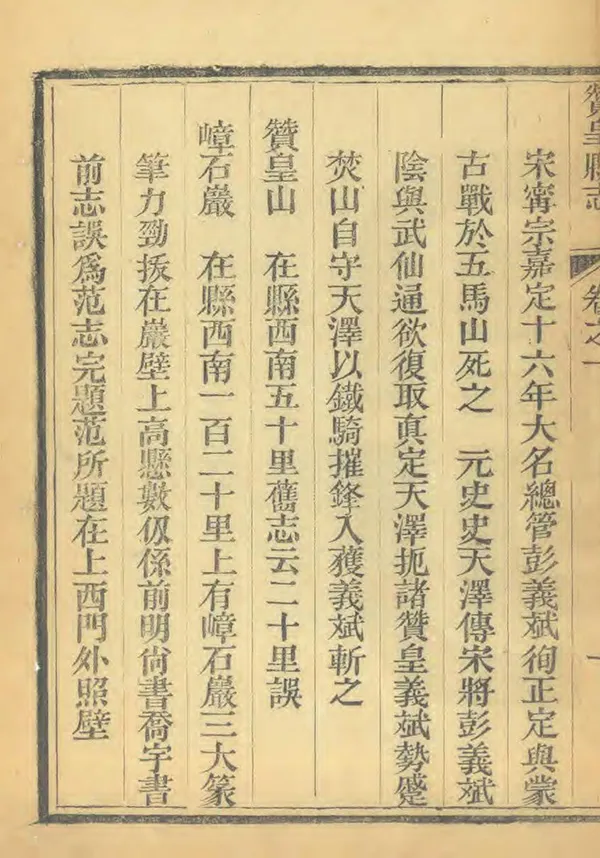 贊皇縣志
卷之一
宋甯宗嘉定十六年大名總管彭義斌徇正定與蒙
古戰於五馬山死之　元史史天澤傳宋將彭義斌
陰與武仙通欲復取真定天澤扼諸贊皇義斌勢蹙
焚山自守天澤以鐵騎摧鋒入獲義斌斬之
贊皇山　在縣西南五十里舊志云二十里誤
嶂石巖　在縣西南一百二十里上有嶂石巖三大篆
筆力勁㧞在巖壁上高懸數仭係前明尙書喬宇書
前志誤爲范志完題范所題在上西門外照壁